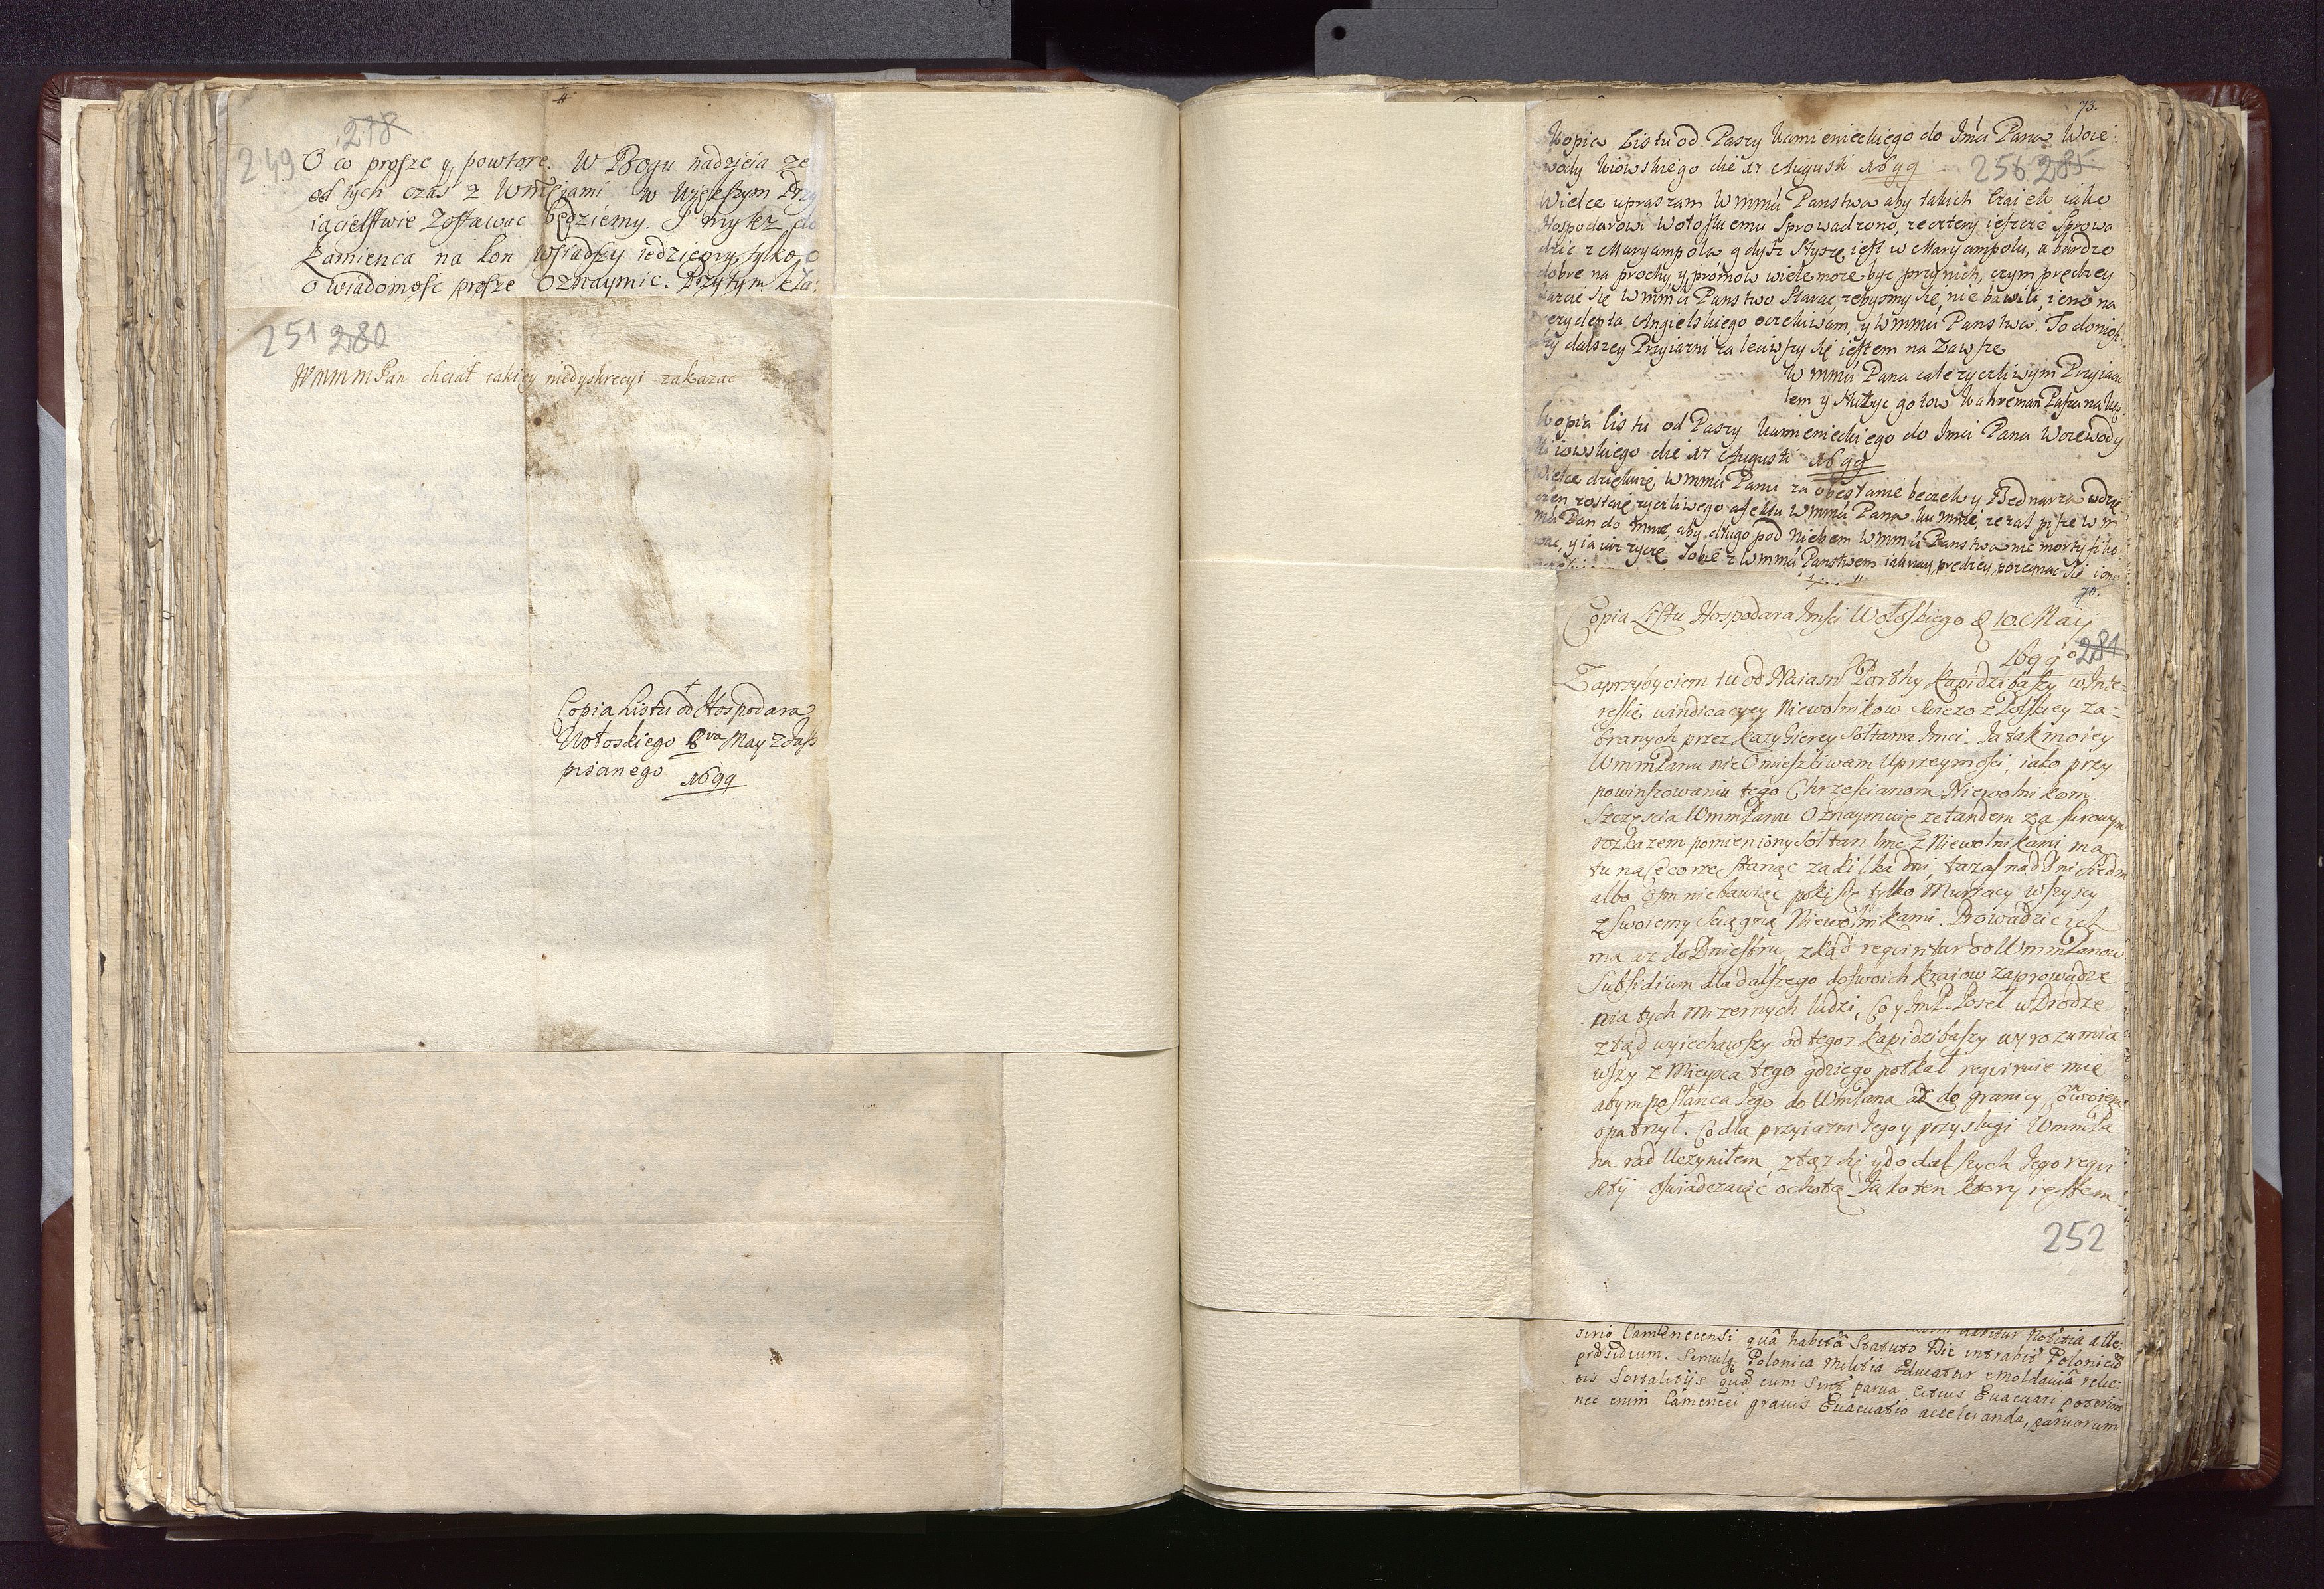 278
249
O co prosze y powtore. W Bogu nadzieia ze
od tych czas z Wmciami w Wiekszym Przy
iacielstwie Zostawac będziemy. I my tez do
Kamienca na kon wsiadszy iedziemy, tylko o
o wiadomosc prosze Oznaymic. Przytym kła:
251 280
WmmmPan chciał takiey niedyskrecyi zakazac
Copia Listu od Hospodara
Wołoskiego 8va May z Jass
pisanego 1699
73.
Kopia Listu od Paszy Kamienieckiego do Jmci Pana Woie:
wody Kiowskiego die 17 Augusti 1699
256 285
Wielce upraszam Wmmci Panstwa aby takich Czaiek iako
Hospodarowi Wołoskiemu Sprowadzono, ze cztery ieszcze Sprowa
dzic z Maryampola gdysz słyszę iest w Maryampolu, a bardzo
dobre na prochy y promow wiele moze byc przy nich, czym prędzey
kazcie się Wmmci Panstwo Starac zebysmy się nie bawili, ieno na
Rezydenta Angielskiego oczekiwam, y Wmmci Panstwa. To doniosz
szy dalszey Przyiazni zaleciwszy się iestem na Zawsze
Wmmci Pana cale zyczliwym Przyiacie
lem y słuzyc gotow Kahreman Pasza na Ka
Kopia listu od Paszy Kamienieckiego do Jmci Pana Woiewody
Kiiowskiego die 17 Augusti 1699
Wielce dziękuię Wmmci Panu za obesłanie beczek y Bednarza wdzię
czen zostaię zyczliwego afektu Wmmci Pana ku mnie, ze zas pisze Wm
mci Pan do mnie, aby długo pod niebem Wmmci Panstwa nie mortyfiko
wac, y ia iuz zyczę Sobie z Wmmci Panstwem iak nay prędzey pozegnac się ieno
70.
Copia Listu Hospodara Jmsci Wołoskiego d 10 Maij
1699o 281
Zaprzybyciem tu od Naiasn Porthy Kapidzibaszy w Inte=
ressie windicacyey Niewolnikow swiezo z Polskiey za=
branych przez Kazy Gierey Sołtana Jmci. Ja tak moiey
WmmPanu nie Omieszkiwam Uprzeymosci, iako przy
powinszowaniu tego Chrzescianom Niewolnikom
Szczęscia WmmPanu Oznaymuię ze tandem za surowym
rozkazem pomieniony Sołtan Jmc z Niewolnikami ma
tu na Cecorze stanąc za kilka dni, tu zas nad Dni siedm
albo Osm nie bawiąc poki się tylko Murzacy wszyscy
z swoiemy sciągną Niewolnikami. Prowadzic ich
ma az do Dniestru, zkąd requiritur od WmmPanow
Subsidium dla dalszego do swoich kraiow zaprowadze
nia tych mizernych ludzi, Co y JmP. Poseł w Drodze
ztąd wyiechawszy od tegoz Kapidzibaszy wyrozumia
wszy z Mieysca tego gdzie go potkał requiruie mię
abym posłanca Jego do WmPana az do granicy Conwoiem
opatrzył. Co dla przyiazni Jego y przysługi WmmPa
na rad Uczyniłem, z tąz się y do dalszych Jego requi
sitij oswiadczaiąc ochotą. Jako ten ktory iestem
252
sirio Camenecensi quâ habitâ Statuto Die intrabit Polonicũ
præsidium. Simulq Polonica Militia Educatur e Moldaviâ relic:
tis fortalitijs quæ cum sint parva citius Evacuari poterint
nec enim Cameneci gravis Evacuatio acceleranda, parvorum